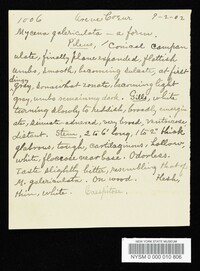 1006 Coeur 9-2-02
Mycena galericulata - a form.
Pileus, 1" Conical campan
ulate, finally plane expanded, flattish
umbo, smooth becoming sulcate, at first
dingy
gray, somewhat ornate, becoming light
gray, umbo remains dark. Gills, white
turning slowly to reddish, broadly emargin
ate, sinuate adnexed, very broad, ventricose,
distant. Stem, 2 to 6" long, 1 to 2" thick
glabrous, tough, cartilaginous, hollow,
white, floccose near base. Odorless.
Taste slightly bitter, resembling that of
M. galericulata. On wood. Flesh,
thin, white. Caespitose.
NEW YORK STATE MUSEUM
NYSM 0 000 010 806